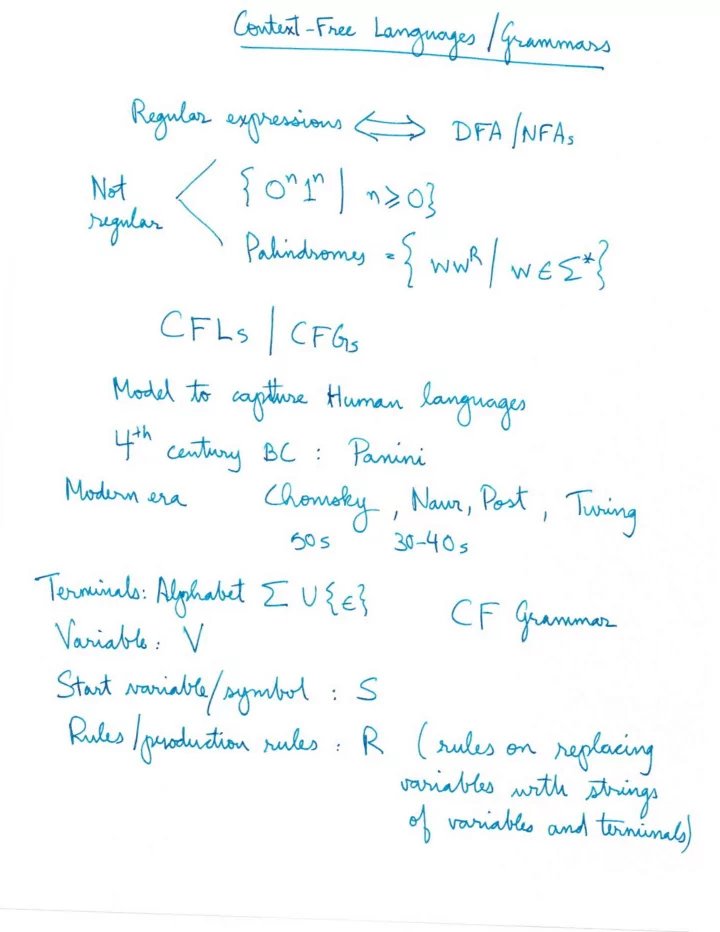 Context-Free Languages/Grammars
Regular expressions ⟺ DFA/NFAs
Not regular
{ 0ⁿ1ⁿ | n ≥ 0}
Palindromes = { wwᴿ / w ∈ Σ* }
CFLs / CFGs
Model to capture Human languages
4th century BC : Panini
Modern era Chomsky, Naur, Post, Turing
50s 30-40s
Terminals: Alphabet Σ ∪ {ε}
CF Grammar
Variable: V
Start variable/symbol : S
Rules/production rules : R (rules on replacing
variables with strings
of variables and terminals)